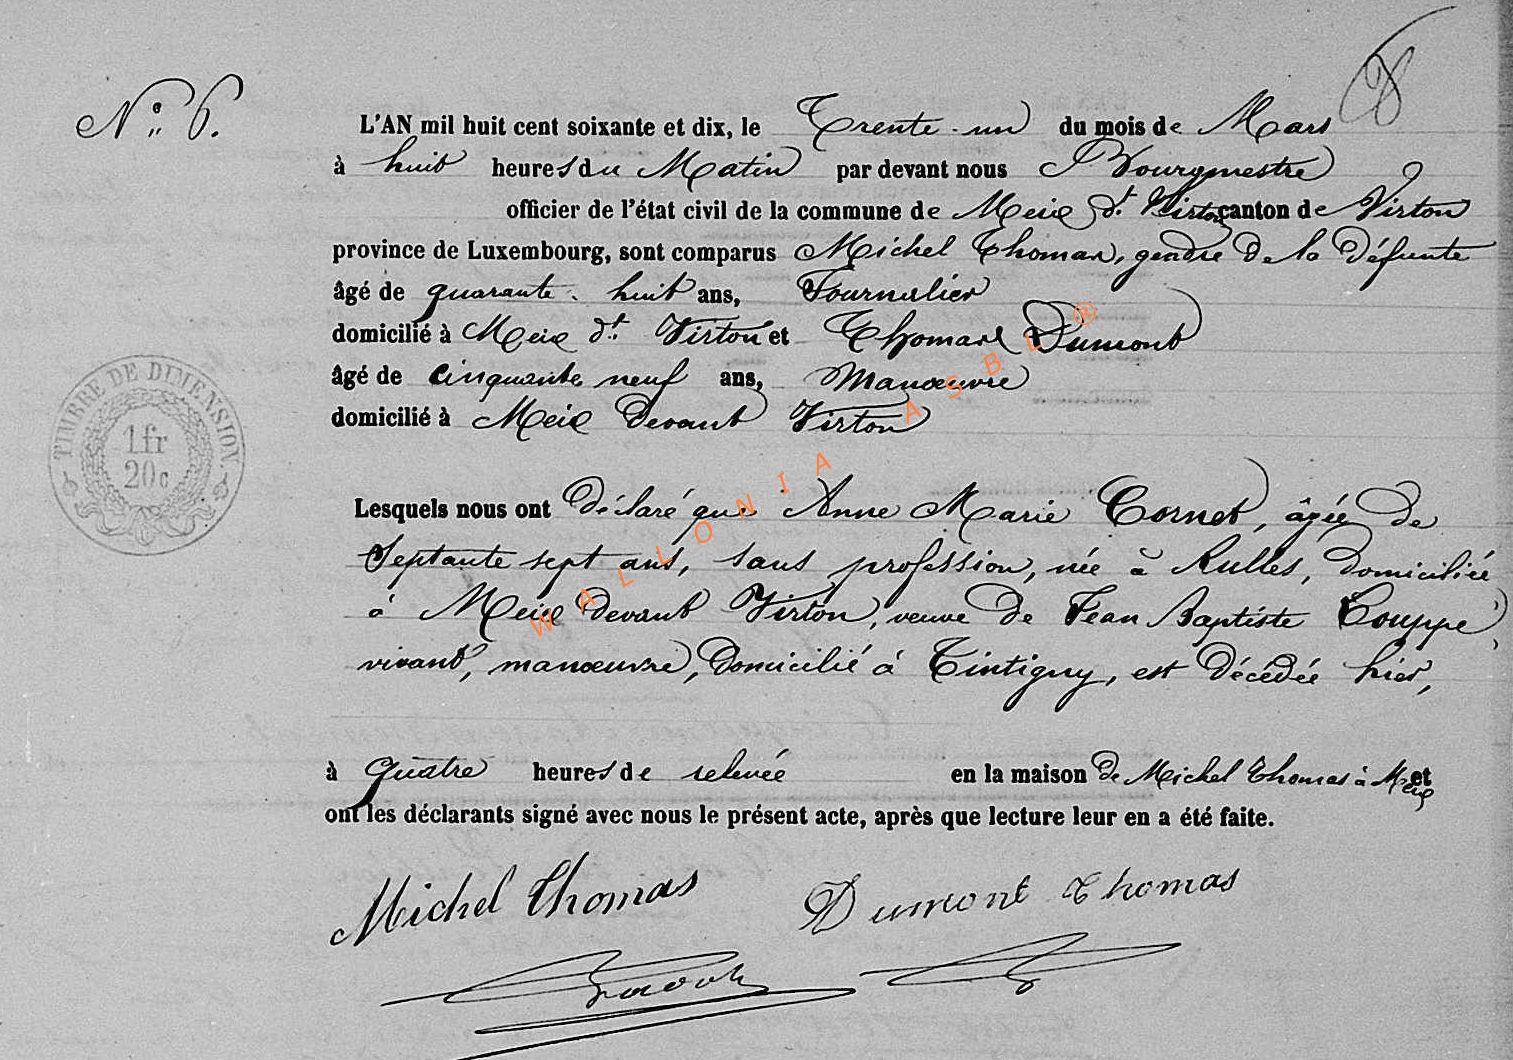 N° 6.
L'AN mil huit cent soixante et dix, le Trente-un du mois de Mars
à huit heures du Matin par devant nous Bourgmestre
officier de l'état civil de la commune de Meix dt. Virton canton de Virton
province de Luxembourg, sont comparus Michel Thomas, gendre de la défunte
âgé de quarante-huit ans, Journalier
domicilié à Meix dt. Virton et Thomas Dumont
âgé de cinquante neuf ans, Manœuvre
domicilié à Meix devant Virton
TIMBRE DE DIMENSION.
1 fr
20 c
Lesquels nous ont déclaré que Anne Marie Cornet, âgée de
Septante sept ans, sans profession, née à Rulles, domiciliée
à Meix devant Virton, veuve de Jean Baptiste Couppé,
vivant, manœuvre, domicilié à Tintigny, est décédée hier,
à quatre heures de relevée en la maison de Michel Thomas à Meix et
ont les déclarants signé avec nous le présent acte, après que lecture leur en a été faite.
Michel Thomas Dumont Thomas
WALLONIA ASBL ®